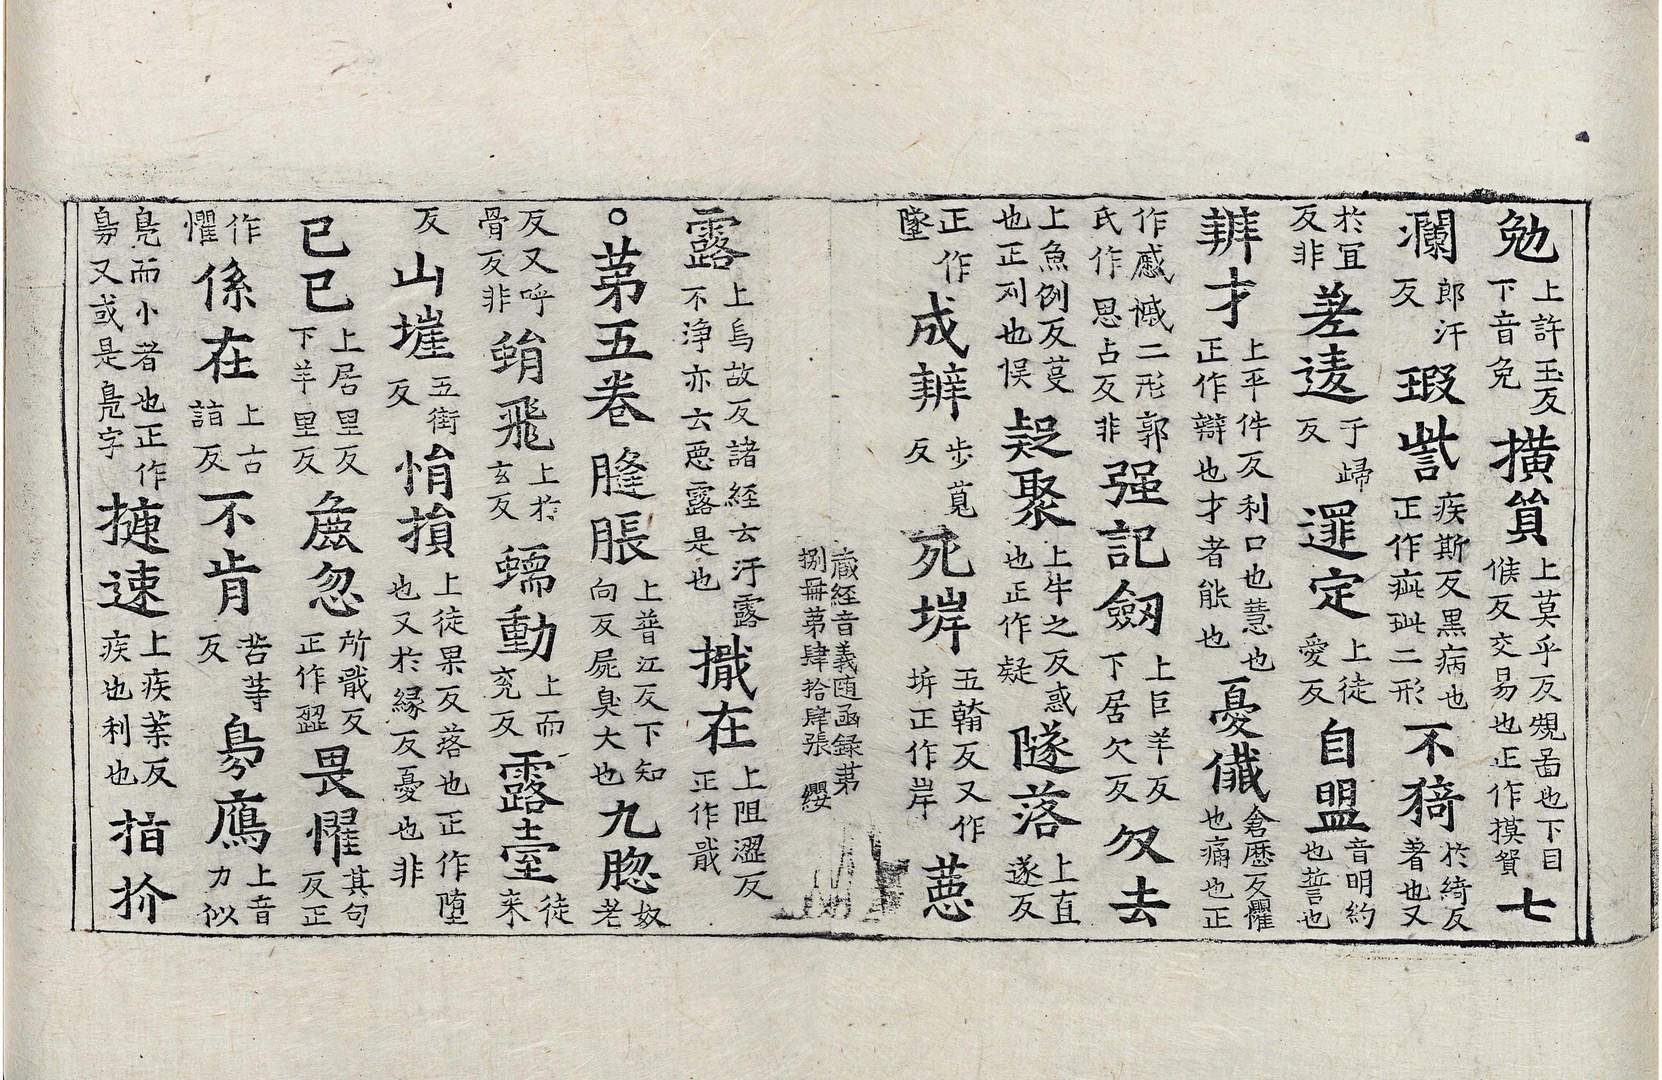 勉上許玉反下音免摸貿上莫乎反䂓啚也下目候反交易也正作摸貿七
瀾郎汗反瑕訾疾斯反黒病也正作疵玼二形不猗於綺反著也又
於冝反非差違于歸反邏定上徒愛反自盟音明約也誓也
辯才上平件反利口也慧也正作辯也才者能也憂懴倉歷反懼也痛也正
作慼慽二形郭氏作思占反非强記劒上巨羊反下居欠反刄去
上魚例反芟也正刈也悮疑聚上牛之反惑也正作疑隧落上直遂反
正作墜成辦步莧反死垶五翰反又作垿正作岸䓤
藏經音義随函録苐捌冊苐肆拾肆張 纓
露上烏故反諸經云汙露不淨亦云惡露是也擮在上阻澀反正作戢
○苐五卷膖脹上普江反下知向反屍臭大也九𦛁奴老
反又呼骨反非蜎飛上於玄反蠕動上而兖反露臺徒来
反山堐五街反悁損上徒果反落也正作墮也又於縁反憂也非
已已上居里反下羊里反㡭忽所戢反正作澀畏懼其句反正
作懼係在上古詣反不肯苦等反鳧鴈上音力似
鳬而小者也正作鳧又或是鳬字㨗速上疾葉反疾也利也指扴